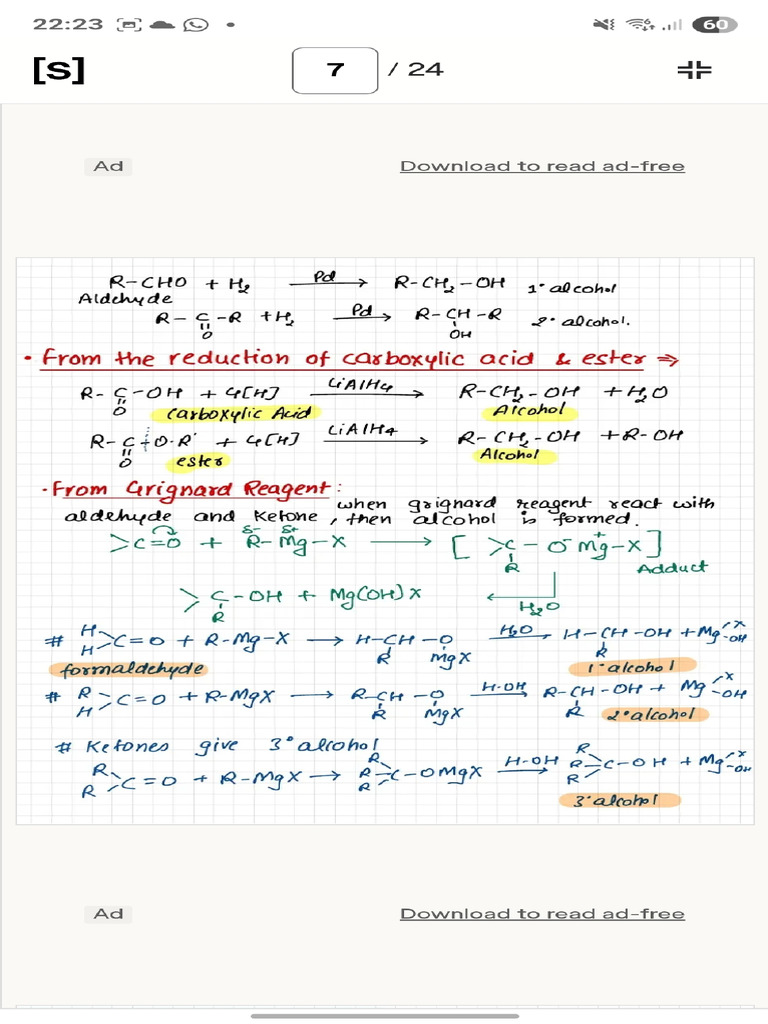 22:23 60
[S] 7 / 24
Ad Download to read ad-free
R-CHO + H₂ —Pd→ R-CH₂-OH 1° alcohol
Aldehyde
R-C-R + H₂ —Pd→ R-CH-R 2° alcohol.
O OH
• From the reduction of carboxylic acid & ester ⇒
R-C-OH + 4[H] —LiAlH4→ R-CH₂-OH + H₂O
O Carboxylic Acid Alcohol
R-C-O·R' + 4[H] —LiAlH4→ R-CH₂-OH + R-OH
O ester Alcohol
• From Grignard Reagent: when grignard reagent react with
aldehyde and Ketone, then alcohol is formed.
>C=O + R^δ--Mg^δ+-X → [>C-O⁻Mg⁺-X]
R Adduct
>C-OH + Mg(OH)X ← H₂O
R
# H H >C=O + R-Mg-X → H-CH-O —H₂O→ H-CH-OH + Mg X OH
formaldehyde R MgX R 1° alcohol
# R H >C=O + R-MgX → R-CH-O —H-OH→ R-CH-OH + Mg X OH
R MgX R 2° alcohol
# Ketones give 3° alcohol
R R >C=O + R-MgX → R R R C-OMgX —H-OH→ R R R C-OH + Mg X OH
3° alcohol
Ad Download to read ad-free